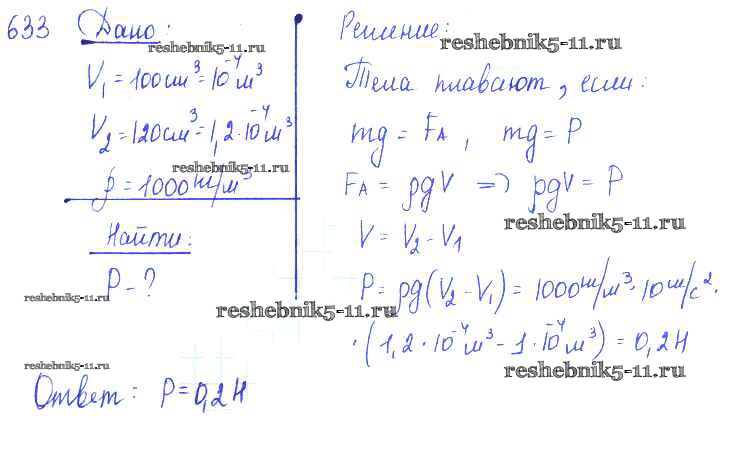 633 Дано:
reshebnik5-11.ru
V₁ = 100 см³ = 10⁻⁴ м³
V₂ = 120 см³ = 1,2·10⁻⁴ м³
reshebnik5-11.ru
ρ = 1000 кг/м³
Найти:
P - ?
reshebnik5-11.ru
Решение:
reshebnik5-11.ru
Тела плавают, если:
mg = FА, mg = P
FА = ρgV => ρgV = P
reshebnik5-11.ru
V = V₂ - V₁
P = ρg(V₂ - V₁) = 1000 кг/м³ · 10 м/с² ·
reshebnik5-11.ru
· (1,2 · 10⁻⁴ м³ - 1 · 10⁻⁴ м³) = 0,2 Н
reshebnik5-11.ru
reshebnik5-11.ru
Ответ: P = 0,2 Н